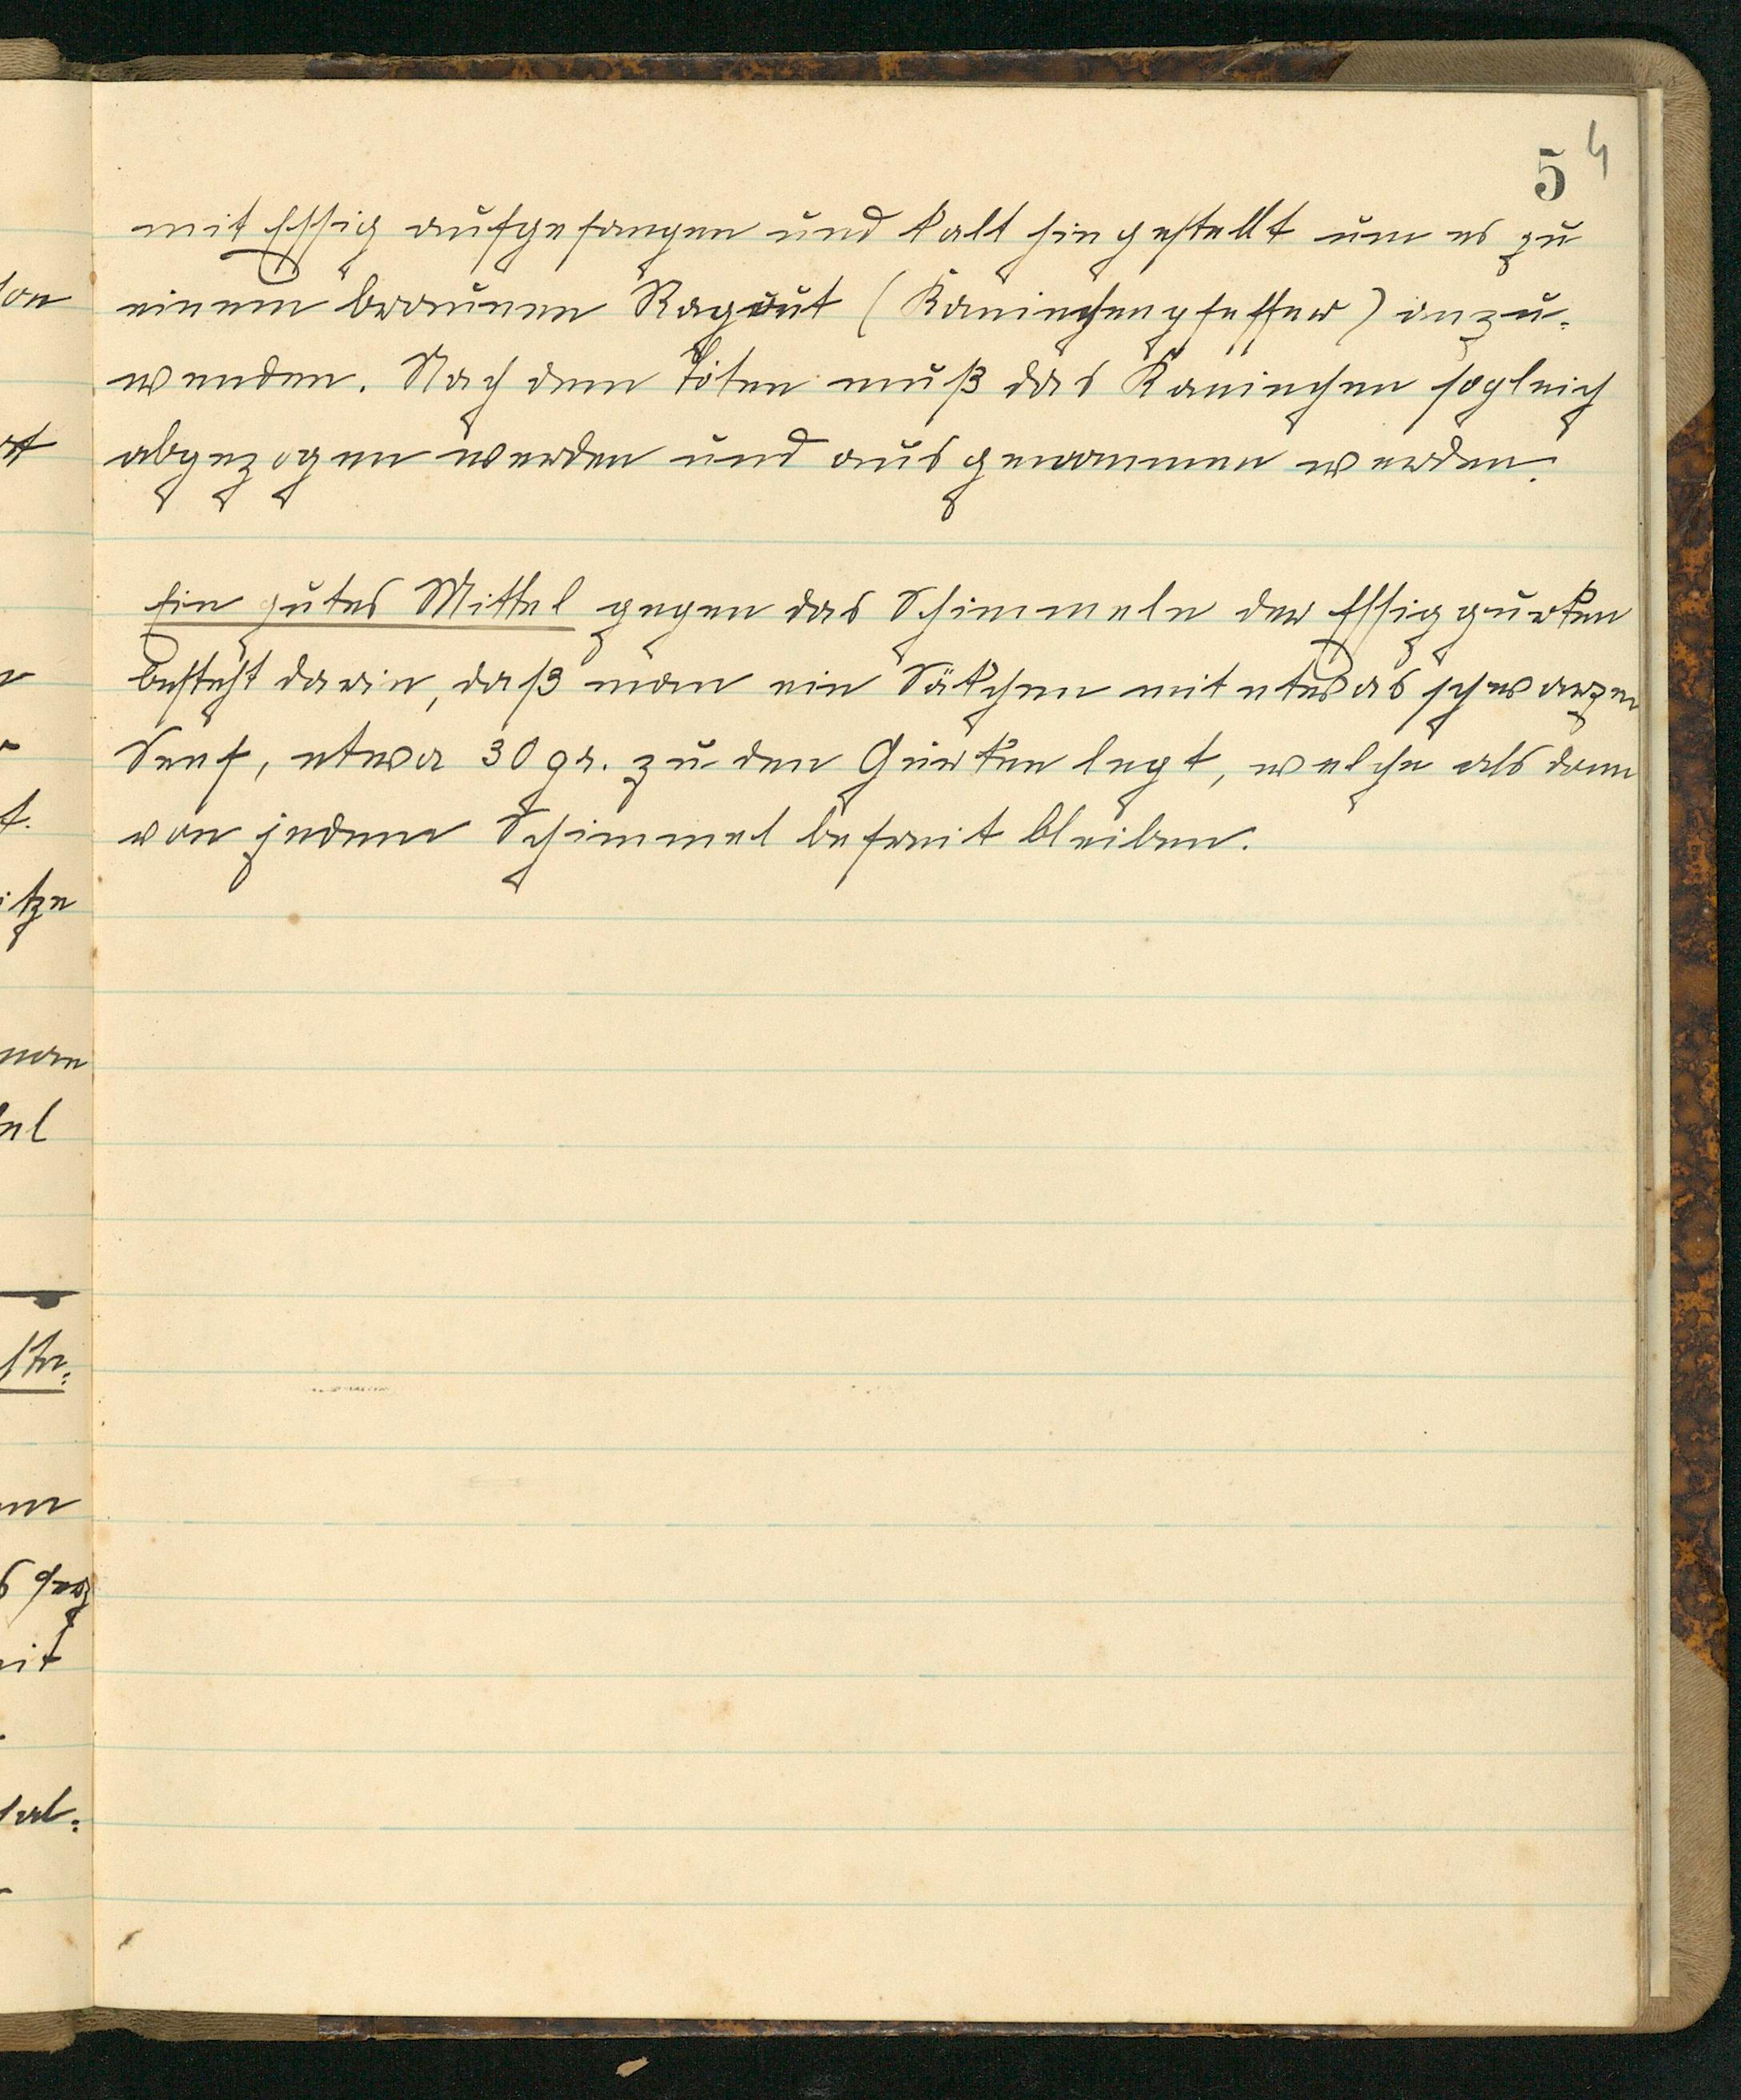 5 4
mit Essig aufgefangen und kalt hingestellt um es zu
einem braunen Ragout (Kaninchenpfeffer) anzu-
wenden. Nach dem Töten muß das Kaninchen sogleich
abgezogen werden und ausgenommen werden.
Ein gutes Mittel gegen das Schimmeln der Essiggurken
besteht darin, daß man ein Säkchen mit etwas schwarzen
Senf, etwa 30 gr. zu den Gurken legt, welche als dann
von jedem Schimmel befreit bleiben.